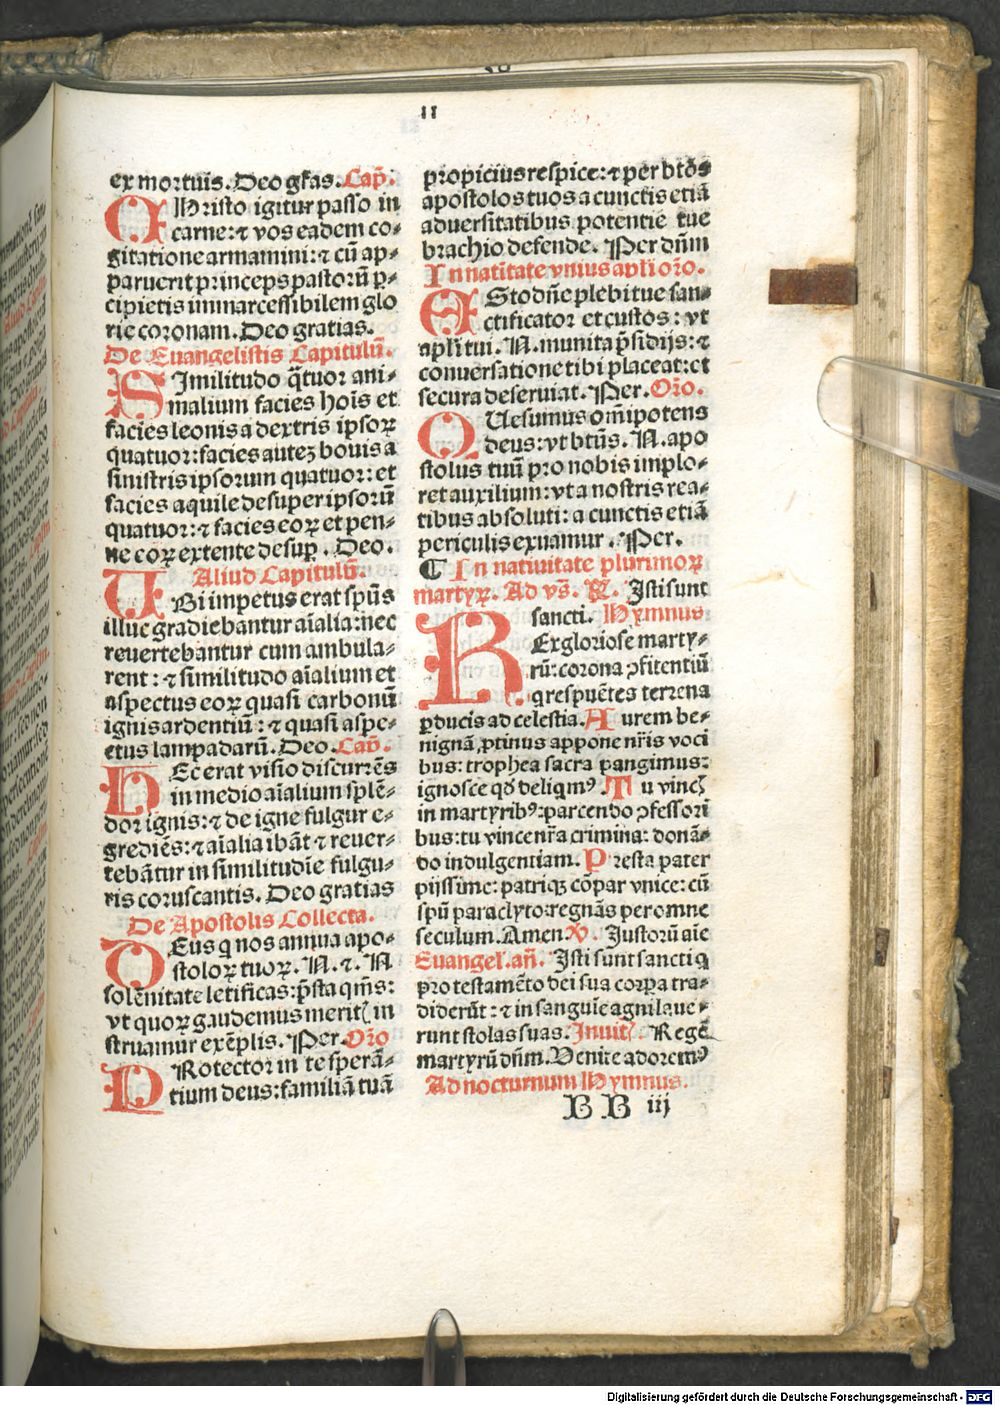 11
ex mortuis. Deo gr̄as. Cap̄.
CHristo igitur passo in
carne: ⁊ vos eadem co-
gitatione armamini: ⁊ cū ap-
paruerit princeps pastorū p̱-
cipietis immarcessibilem glo
rie coronam. Deo gratias.
De Euangelistis Capitulū.
SImilitudo q̄tuor ani-
malium facies hoīs et
facies leonis a dextris ipsoꝝ
quatuor: facies auteꝫ bouis a
sinistris ipsorum quatuor: et
facies aquile desuper ipsorū
quatuor: ⁊ facies eoꝝ et pen-
ne eoꝝ extente desuꝑ. Deo.
Aliud Capitulū.
VBi impetus erat spūs
illuc gradiebantur aīalia: nec
reuertebantur cum ambula-
rent: ⁊ similitudo aīalium et
aspectus eoꝝ quasi carbonū
ignis ardentiū: ⁊ quasi aspe-
ctus lampadarū. Deo. Cap̄.
HEc erat visio discurrēs
in medio aīalium splē-
dor ignis: ⁊ de igne fulgur e-
grediēs: ⁊ aīalia ibāt ⁊ reuer-
tebātur in similitudīe fulgu-
ris coruscantis. Deo gratias
De Apostolis Collecta.
DEus q̇ nos annua apo-
stoloꝝ tuoꝝ. N. ⁊. N
solēnitate letificas: p̄sta qm̄s:
vt quoꝝ gaudemus meritꝭ in
struamur exēplis. Per. Orō
PRotector in te sperā-
tium deus: familiā tuā
propicius respice: ⁊ per btōs
apostolos tuos a cunctis etiā
aduersitatibus potentie tue
brachio defende. Per dn̄m
In natītate vnius apl̄i orō.
ESto dn̄e plebi tue san-
ctificator et custos: vt
apl̄i tui. N. munita p̄sidijs: ⁊
conuersatione tibi placeat: et
secura deseruiat. Per. Orō.
QUesumus om̄ipotens
deus: vt btūs. N. apo
stolus tuū pro nobis implo-
ret auxilium: vt a nostris rea-
tibus absoluti: a cunctis etiā
periculis exuamur. Per.
¶ In natiuitate plurimoꝝ
martyꝝ. Ad vs̄. ℟. Isti sunt
sancti. Hymnus
REx gloriose marty-
rū: corona ꝯfitentiū
q̇ respuētes terrena
ꝑducis ad celestia. Aurem be-
nignā ꝓtinus appone nr̄is voci
bus: trophea sacra pangimus:
ignosce qd̄ deliqmꝰ. Tu vincꝭ
in martyribꝰ: parcendo ꝯfessorī
bus: tu vince nr̄a crimina: donā-
do indulgentiam. Presta pater
pijssime: patriqꝫ cōpar vnice: cū
spū paraclyto: regnās per omne
seculum. Amen ℣. Iustorū aīe
Euangel. añ. Isti sunt sancti q̇
pro testamēto dei sua corpa tra-
diderūt: ⁊ in sanguīe agni laue-
runt stolas suas. Inuitꝭ. Regē
martyrū dn̄m. Venite adoremꝰ
Ad nocturnum Hymnus.
BB iij
Digitalisierung gefördert durch die Deutsche Forschungsgemeinschaft - DFG